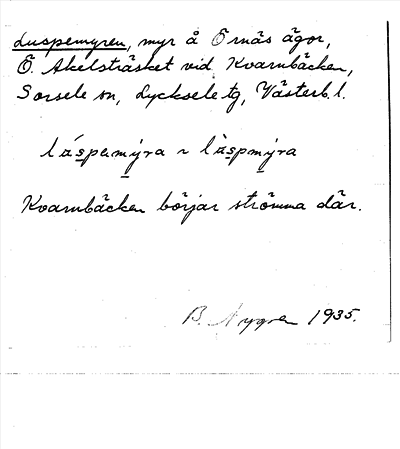 Luspemyren, myr å Örnäs ägor,
Ö. Akelsträsket vid Kvarnbäcken,
Sorsele sn, Lycksele tg, Västerb. l.
Kvarnbäcken börjar strömma där.
B. Nygren 1935.